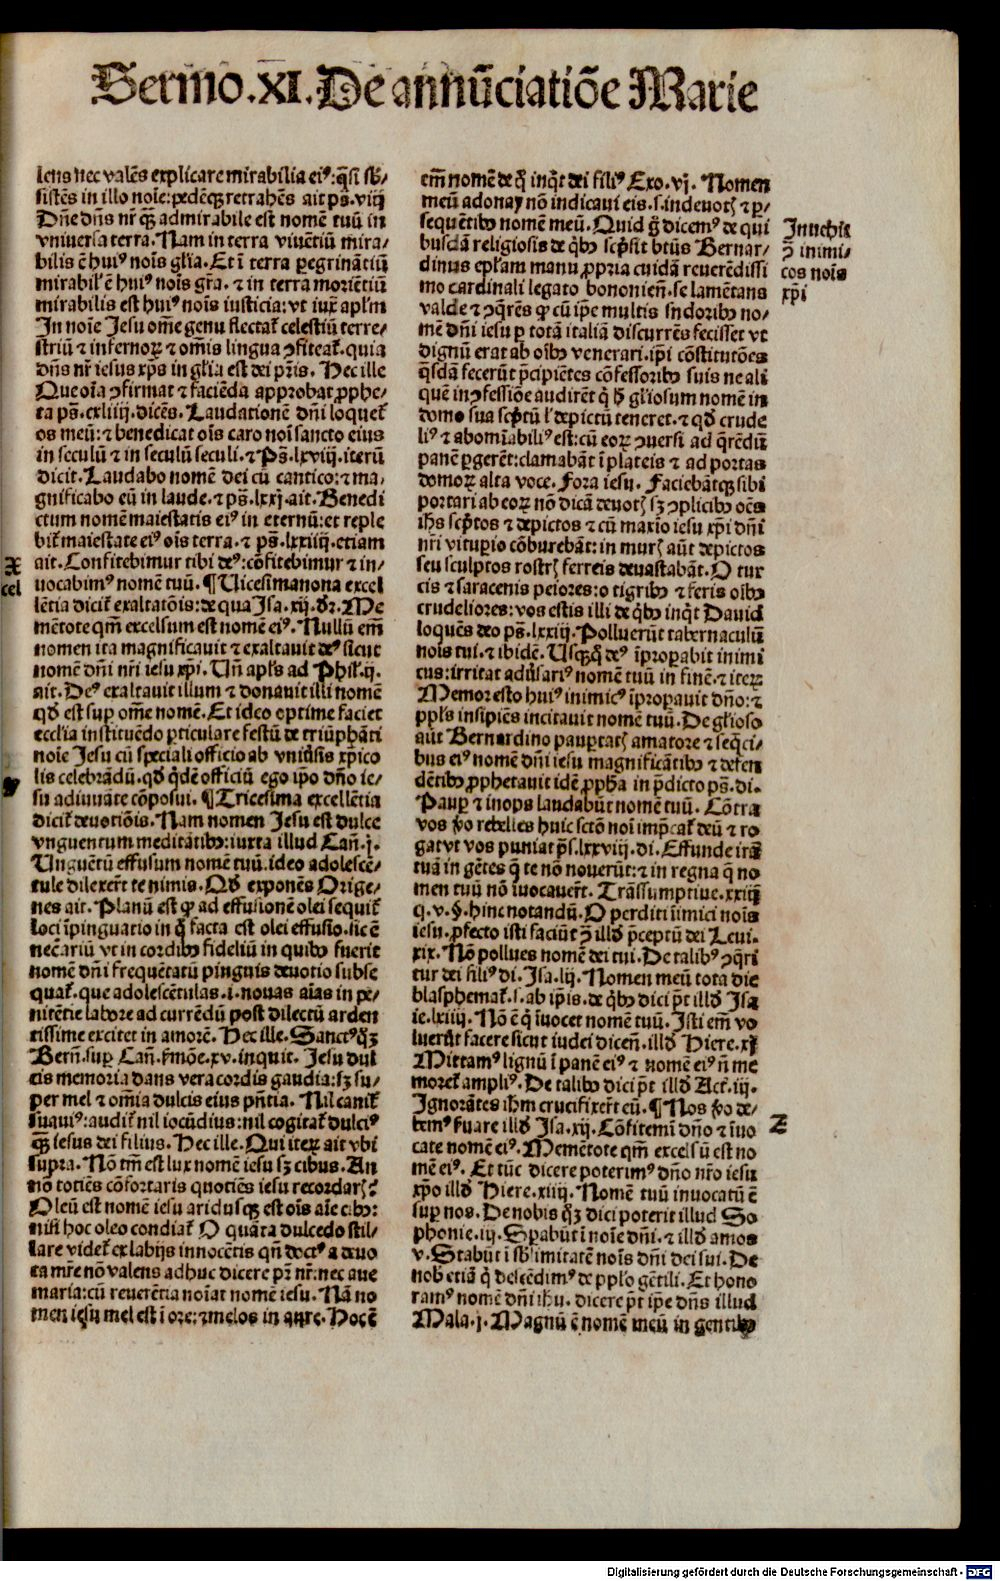 Sermo.XI.De annūciatiōe Marie
lens nec valēs explicare mirabilia eiꝰ:q̄si sb-
sistēs in illo noīe:pedēqꝫ retrahēs ait pš.viij
Dn̄e dn̄s nr̄ qꝫ admirabile est nomē tuū in
vniuersa terra.Nam in terra viuētiū mira-
bilis ē huiꝰ noīs gl̄ia.Et ī terra peregrinātiū
mirabil' ē huiꝰ noīs gr̄a.⁊ in terra morietiū
mirabilis est huiꝰ noīs iusticia:vt iux̄ apl̄m
In noīe Jesu om̄e genu flectat̄ celestiū terre-
striū ⁊ infernoꝝ ⁊ om̄is lingua ꝯfiteat̄.quia
dn̄s nr̄ iesus xp̄s in gl̄ia est dei pr̄is. Hec ille
Que oīa ꝯfirmat ⁊ faciēda approbat ꝓphe-
ta pš.cxliiij.dicēs.Laudationē dn̄i loquet̄
os meū:⁊ benedicat oīs caro noī sancto eius
in seculū ⁊ in seculū seculi.⁊ Pš.lxviij.iterū
dicit.Laudabo nomē dei cū cantico:⁊ ma-
gnificabo eū in laude.⁊ pš.lxxj.ait.Benedi
ctum nomē maiestatis eiꝰ in eternū:et reple
bit̄ maiestate eiꝰ oīs terra.⁊ pš.lxxiiij.etiam
ait.Confitebimur tibi deꝰ:cōfitebimur ⁊ in-
vocabimꝰ nomē tuū.¶Uicesimanona excel
lētia dicit̄ exaltatōis:de qua Jsa.xij.dr̄.Me
mētote qm̄ excelsum est nomē eiꝰ.Nullū em̄
nomen ita magnificauit ⁊ exaltauit deꝰ sicut
nomē dn̄i nr̄i iesu xp̄i.Uñ apl̄s ad Phil'.ij.
ait.Deꝰ exaltauit illum ⁊ donauit illi nomē
qd̄ est suꝑ om̄e nomē.Et ideo optime faciet
eccl̄ia instituēdo ꝑticulare festū de triūphāti
noīe Jesu cū speciali officio ab vniūsis xp̄ico
lis celebrādū.qd̄ qdē officiū ego ip̄o dn̄o ie-
su adiuuāte cōposui.¶Tricesima excellētia
dicit̄ deuotiōis.Nam nomen Jesu est dulce
vnguentum meditātibꝫ:iuxta illud Cañ.j.
Unguētū effusum nomē tuū.ideo adolescē-
tule dilexer̄t te nimis.Qd̄ exponēs Orige-
nes ait.Planū est ꝙ ad effusionē olei sequit̄
loci īpinguatio in q̄ facta est olei effusio.sic ē
necāriū vt in cordibꝫ fideliū in quibꝫ fuerit
nomē dn̄i frequētatū pinguis deuotio subse
quat̄.que adolescētulas.i.nouas aīas in pe-
nitētie labore ad currēdū post dilectū arden
tissime excitet in amorē.Hec ille.Sanctꝰ qꝫ
Berñ.suꝑ Cañ.ſmōe.xv.inquit. Jesu dul
cis memoria dans vera cordis gaudia:sꝫ su-
per mel ⁊ om̄ia dulcis eius pn̄tia. Nil canit̄
suauiꝰ:audit̄ nil iocūdius:nil cogitat̄ dulciꝰ
qꝫ iesus dei filius.Hec ille.Qui iteꝝ ait vbi
supra.Nō tm̄ est lux nomē iesu sꝫ cibus.An
nō totiēs cōfortaris quotiēs iesu recordaris?
Oleū est nomē iesu aridusqꝫ est oīs aīe cibꝫ:
nisi hoc oleo condiat̄ O quāta dulcedo stil-
lare videt̄ ex labijs innocētis qñ doctꝰ a deuo
ta mr̄e nō valens adhuc dicere pr̄ nr̄:nec aue
maria:cū reuerētia noīat nomē iesu. Nā no
men iesu mel est ī ore:⁊ melos in aure.Hoc ē
X
cel
em̄ nomē de q̄ inqt̄ dei filiꝰ Exo.vj. Nomen
meū adonay nō indicaui eis.s.indeuotis ⁊ ꝑ-
sequētibꝫ nomē meū.Quid g̊ dicemꝰ de qui
busdā religiosis de qbꝫ scp̄sit btūs Bernar-
dinus ep̄lam manu ꝓpria cuidā reuerēdissi
mo cardinali legato bononieñ.se lamētans
valde ⁊ ꝯq̄rēs ꝙ cū ip̄e multis sudoribꝫ no-
mē dn̄i iesu ꝑ totā italiā discurrēs fecisset vt
dignū erat ab oībꝫ venerari.ip̄i cōstitutōes
qsdā fecerūt p̄cipiētes cōfessoribꝫ suis ne ali
quē in ꝯfessiōe audirēt q̄ h̄ gl̄iosum nomē in
domo sua scp̄tū l' depictū teneret.⁊ qd̄ crude
liꝰ ⁊ abomīabiliꝰ est:cū eoꝝ ꝯuersi ad q̄rēdū
panē ꝑgerēt:clamabāt ī plateis ⁊ ad portas
domoꝝ alta voce.Fora iesu. Faciebātqꝫ sibi
portari ab eoꝝ nō dicā deuotis sꝫ ꝯplicibꝫ oēs
ihs scp̄tos ⁊ depictos ⁊ cū maxīo iesu xp̄i dn̄i
nr̄i vituꝑio cōburebāt:in muris aūt depictos
seu sculptos rostris ferreis deuastabāt.O tur
cis ⁊ saracenis peiores:o tigribꝫ ⁊ feris oībꝫ
crudeliores:vos estis illi de qbꝫ inqt̄ Dauid
loquēs deo pš.lxxiij.Polluerūt tabernaculū
noīs tui.⁊ ibidē.Usqꝫqͦ deꝰ īproꝑabit inimi
cus:irritat aduūsariꝰ nomē tuū in finē.⁊ iteꝝ
Memor esto huiꝰ inimicꝰ īproꝑauit dn̄o:⁊
ppl̄s insipiēs incitauit nomē tuū.De gl̄ioso
aūt Bernardino pauꝑtatis amatore ⁊ seqci-
bus eiꝰ nomē dn̄i iesu magnificātibꝫ ⁊ defen
dētibꝫ ꝓphetauit idē ꝓph̄a in p̄dicto pš.di.
Pauꝑ ⁊ inops laudabūt nomē tuū. Cōtra
vos ꝟo rebelles huic sctō noī imp̄cat̄ deū ⁊ ro
gat vt vos puniat pš.lxxviij.di.Effunde irā
tuā in gētes q̄ te nō nouerūt:⁊ in regna q̄ no
men tuū nō īuocauer̄t.Trāssumptiue.xxiij.
q.v.§.hinc notandū.O perditi īimici noīs
iesu.ꝓfecto isti faciūt ꝯ̄ illd̄ p̄ceptū dei Leui.
xix.Nō pollues nomē dei tui.De talibꝰ ꝯq̄ri
tur dei filiꝰ di.Jsa.lij. Nomen meū tota die
blasphemat̄.s.ab ip̄is.de qbꝫ dici p̄t illd̄ Jsa
ie.lxiiij.Nō ē q̄ īuocet nomē tuū.Jsti em̄ vo
luerūt facere sicut iudei diceñ.illd̄ Hiere.xj
Mittamꝰ lignū ī panē eiꝰ ⁊ nomē eiꝰ ñ me
moret̄ ampliꝰ.De talibꝫ dici p̄t illd̄ Act̄.iij.
Ignorātes ihm̄ crucifixer̄t eū.¶Nos ꝟo de-
bemꝰ ſuare illd̄ Jsa.xij.Cōfitemī dn̄o ⁊ īuo
cate nomē eiꝰ.Memētote qm̄ excelsū est no
mē eiꝰ. Et tūc dicere poterimꝰ dn̄o nr̄o iesu
xp̄o illd̄ Hiere.xiiij. Nomē tuū inuocatū ē
suꝑ nos.De nobis qꝫ dici poterit illud So
phonie.iij.Sꝑabūt ī noīe dn̄i.⁊ illd̄ amos
v.Stabūt ī sb̄limitatē noīs dn̄i dei sui.De
nob̄ etiā q̄ descēdimꝰ de ppl̄o gētili.Et hono
ramꝰ nomē dn̄i ihu.dicere p̄t ip̄e dn̄s illud
Mala.j.Magnū ē nomē meū in gentibꝫ
Inuehit̄
ꝯ̄ inimi-
cos noīs
xp̄i
Z
Digitalisierung gefördert durch die Deutsche Forschungsgemeinschaft - DFG